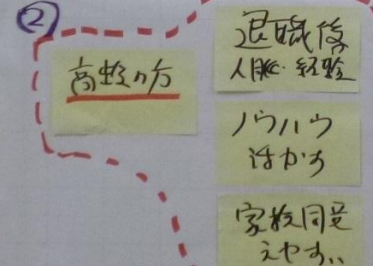 ②
高齢の方
退職後
人脈・経験
ノウハウ
活かす
家族同意
えやすい